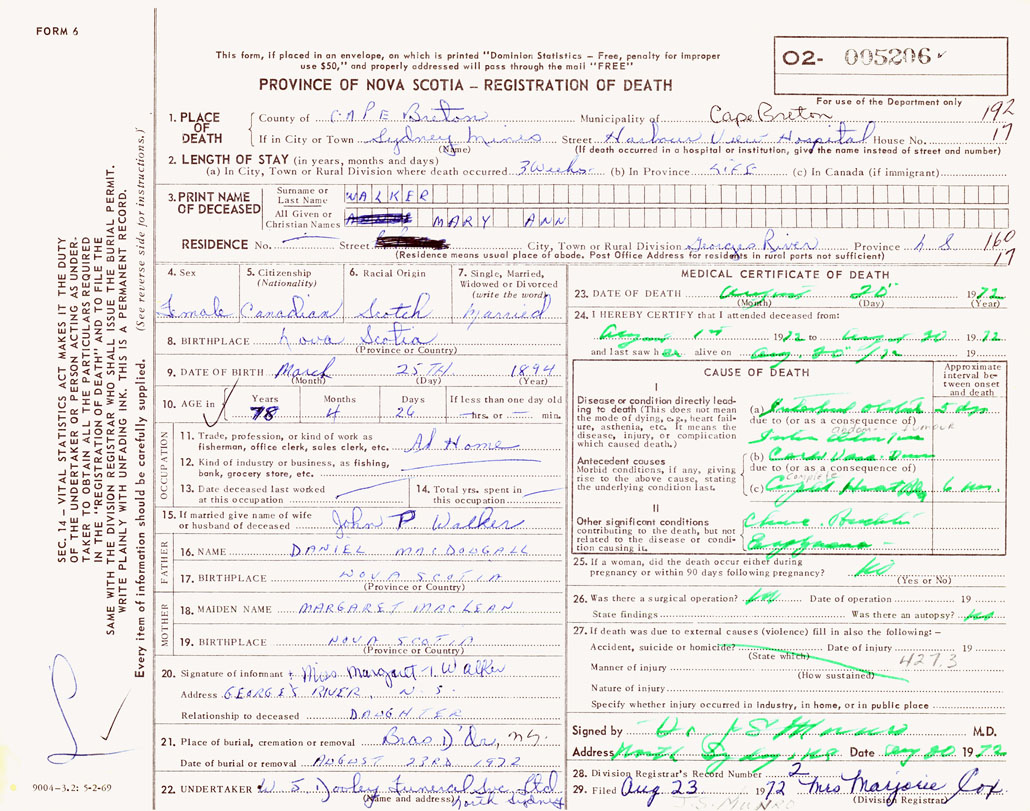 FORM 6
This form, if placed in an envelope, on which is printed "Dominion Statistics – Free, penalty for improper
use $50," and properly addressed will pass through the mail "FREE"
O2- 005206
PROVINCE OF NOVA SCOTIA – REGISTRATION OF DEATH
For use of the Department only
1. PLACE OF DEATH
County of CAPE Breton Municipality of Cape Breton 192
If in City or Town Sydney Mines Street Harbour View Hospital House No. 17
(Name) (If death occurred in a hospital or institution, give the name instead of street and number)
2. LENGTH OF STAY (in years, months and days)
(a) In City, Town or Rural Division where death occurred 3 Weeks (b) In Province LIFE (c) In Canada (if immigrant)
3. PRINT NAME OF DECEASED
Surname or Last Name WALKER
All Given or Christian Names MARY ANN
RESIDENCE No. Street City, Town or Rural Division Georges River Province N S 160
(Residence means usual place of abode. Post Office Address for residents in rural parts not sufficient) 17
4. Sex Female
5. Citizenship (Nationality) Canadian
6. Racial Origin Scotch
7. Single, Married, Widowed or Divorced (write the word) Married
8. BIRTHPLACE Nova Scotia
(Province or Country)
9. DATE OF BIRTH March 25TH 1894
(Month) (Day) (Year)
10. AGE in Years Months Days If less than one day old
78 4 26 hrs. or min.
OCCUPATION
11. Trade, profession, or kind of work as fisherman, office clerk, sales clerk, etc. At Home
12. Kind of industry or business, as fishing, bank, grocery store, etc.
13. Date deceased last worked at this occupation
14. Total yrs. spent in this occupation
15. If married give name of wife or husband of deceased John P Walker
FATHER
16. NAME DANIEL MACDOUGALL
17. BIRTHPLACE NOVA SCOTIA
(Province or Country)
MOTHER
18. MAIDEN NAME MARGARET MACLEAN
19. BIRTHPLACE NOVA SCOTIA
(Province or Country)
20. Signature of informant Miss Margaret T Walker
Address GEORGES RIVER, N. S.
Relationship to deceased DAUGHTER
21. Place of burial, cremation or removal Bras D'Or, N.S.
Date of burial or removal AUGUST 23RD 1972
22. UNDERTAKER W. J. Dooley Funeral Svc. Ltd.
(Name and address) North Sydney
MEDICAL CERTIFICATE OF DEATH
23. DATE OF DEATH August 20 1972
(Month) (Day) (Year)
24. I HEREBY CERTIFY that I attended deceased from:
August 1st 1972 to August 20 1972
and last saw her alive on Aug. 20 /72 19
CAUSE OF DEATH
Approximate interval between onset and death
I
Disease or condition directly leading to death (This does not mean the mode of dying, e.g., heart failure, asthenia, etc. It means the disease, injury, or complication which caused death.)
(a) Intestinal Obst 5 dys
due to (or as a consequence of)
Antecedent causes
Morbid conditions, if any, giving rise to the above cause, stating the underlying condition last.
(b)
due to (or as a consequence of)
Complete
(c)
II
Other significant conditions contributing to the death, but not related to the disease or condition causing it.
25. If a woman, did the death occur either during pregnancy or within 90 days following pregnancy? No
(Yes or No)
26. Was there a surgical operation? No Date of operation 19
State findings Was there an autopsy? No
27. If death was due to external causes (violence) fill in also the following: –
Accident, suicide or homicide? Date of injury 19
(State which) 427.3
Manner of injury
(How sustained)
Nature of injury
Specify whether injury occurred in industry, in home, or in public place
Signed by Dr. J S Munro M.D.
Address North Sydney, N.S. Date Aug 20 1972
28. Division Registrar's Record Number 2
29. Filed Aug 23 1972 Mrs Marjorie Cox
(Division Registrar)
J.S. MUNRO
SEC. 14 – VITAL STATISTICS ACT MAKES IT THE DUTY
OF THE UNDERTAKER OR PERSON ACTING AS UNDER-
TAKER TO OBTAIN ALL THE PARTICULARS REQUIRED
IN THE "REGISTRATION OF DEATH" AND TO FILE THE
SAME WITH THE DIVISION REGISTRAR WHO SHALL ISSUE THE BURIAL PERMIT.
WRITE PLAINLY WITH UNFADING INK. THIS IS A PERMANENT RECORD.
Every item of information should be carefully supplied. (See reverse side for instructions.)
9004-3.2: 5-2-69